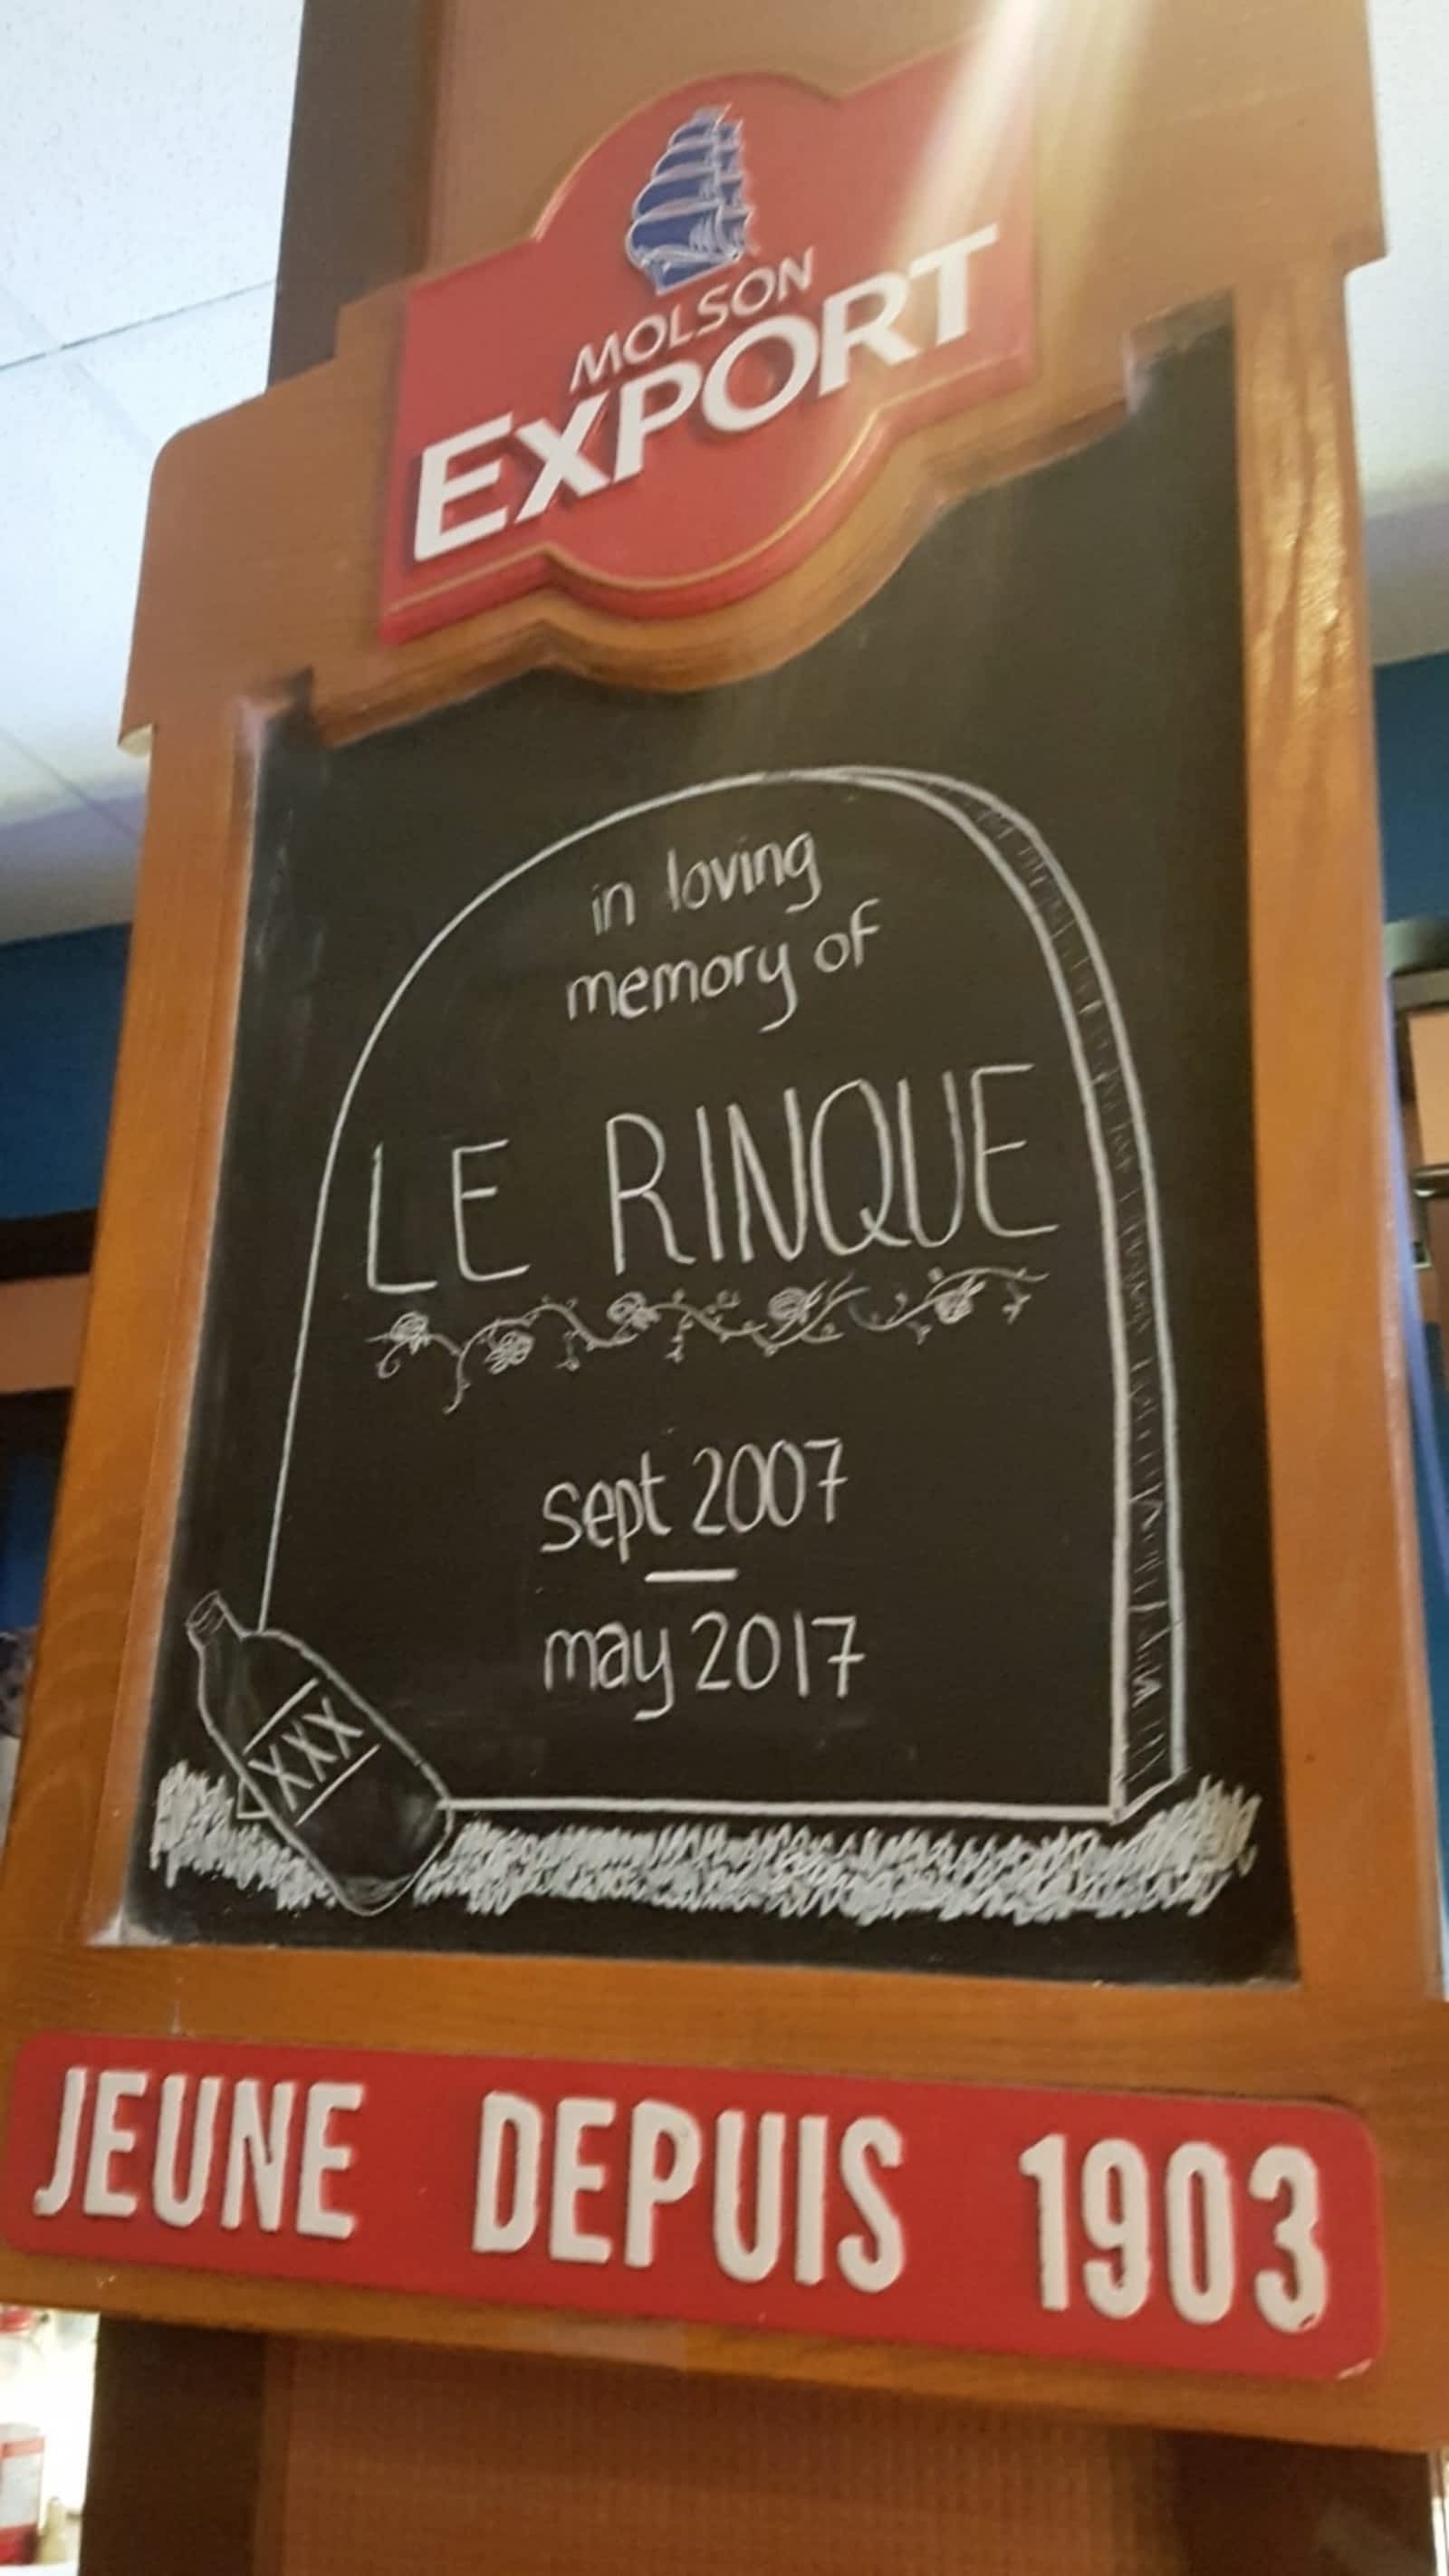 MOLSON
EXPORT
in loving
memory of
LE RINQUE
sept 2007
—
may 2017
XXX
JEUNE DEPUIS 1903